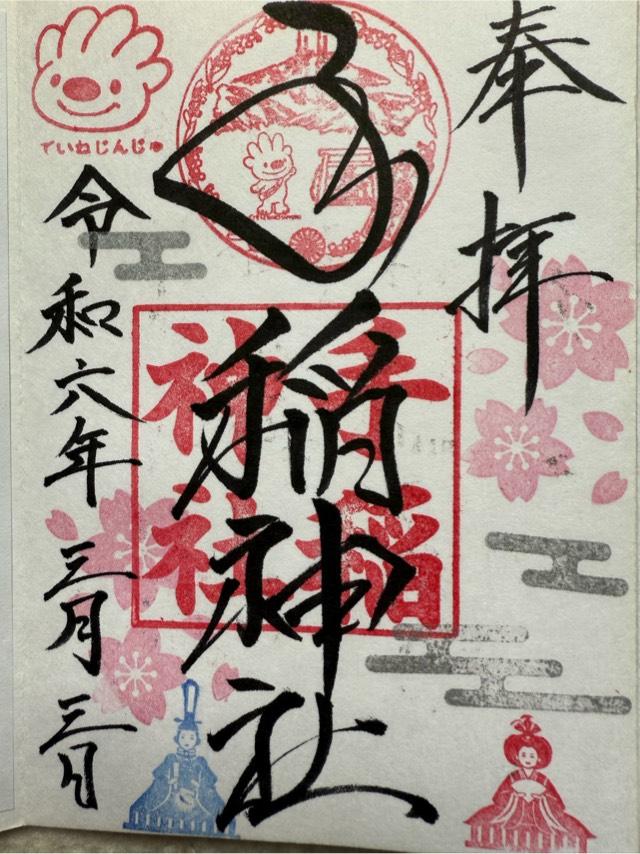 奉拝
手稲神社
手稲
神社
令和六年三月三日
ていねじんじゃ